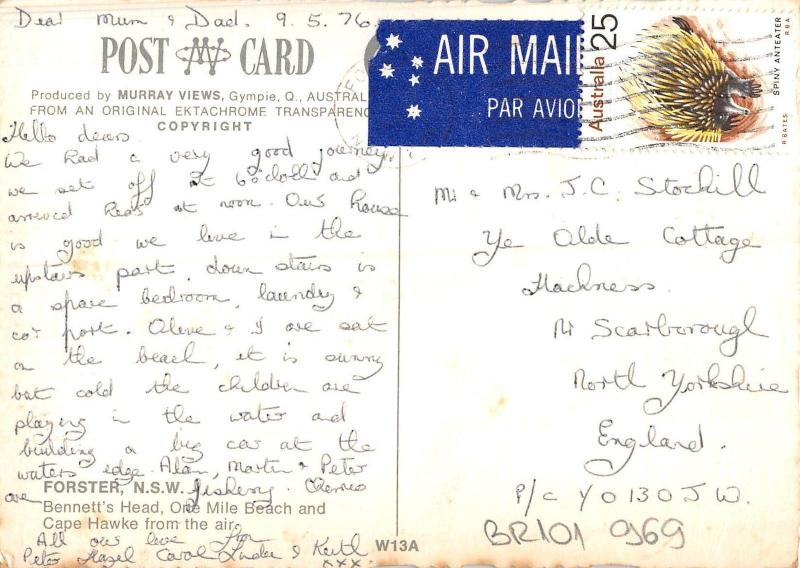 Dear Mum & Dad. 9.5.76.
POST CARD
Produced by MURRAY VIEWS, Gympie, Q., AUSTRAL
FROM AN ORIGINAL EKTACHROME TRANSPARENC
COPYRIGHT
Hello dears
We had a very good journey
we set off at 6 o'clock and
arrived here at noon. Our house
is good we live in the
upstairs part. down stairs is
a spare bedroom, laundry &
car port. Olive & I are sat
on the beach, it is sunny
but cold the children are
playing in the water and
building a big car at the
waters edge. Alan, Martin & Peter
are fishing. Cheerio
FORSTER, N.S.W.
Bennett's Head, One Mile Beach and
Cape Hawke from the air.
All our love from
Peter Hazel Carol Linda & Keith
xxx.
W13A
AIR MAIL
PAR AVION
Australia 25
SPINY ANTEATER
RBA
R BATES
Mr & Mrs. J.C. Stockill
Ye Olde Cottage
Hackness.
Nr Scarborough
North Yorkshire
England.
P/C YO13 0JW.
BR101 969